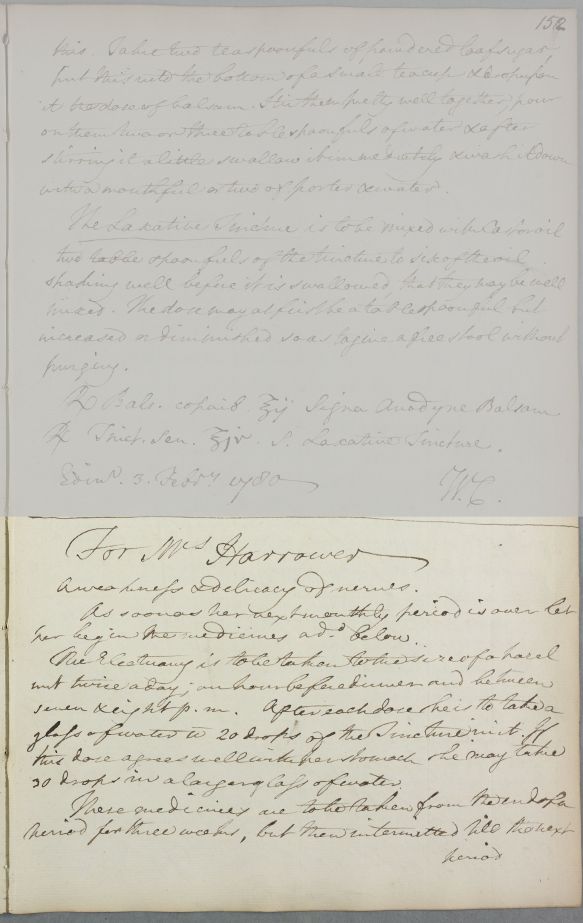 152
this. Take two teaspoonfuls of powdered loaf sugar
put this into the bottom of a small teacup & drop upon
it the dose of balsam. Stir them pretty well together, pour
on them two or three tablespoonfuls of water & after
stirring it a little swallow it immediately & wash it down
with a mouthful or two of porter & water.
The Laxative Tincture is to be mixed with Castor oil
two table spoonfuls of the tincture to six of the oil
shaking well before it is swallowed that they may be well
mixed. The dose may at first be a tablespoonful but
increased or diminished so as to give a free stool without
purging.
℞ Bals. copaib. ℥ij Signa Anodyne Balsam
℞ Tinct. Sen. ℥iv. S. Laxative Tincture.
Edinr. 3. Febry 1780
W.C.
For Mrs Harrower
A weakness & delicacy of nerves.
As soon as her next monthly period is over let
her begin the medicines ad.d below
The Electuary is to be taken to the size of a hazel
nut twice a day; an hour before dinner and between
seven & eight p.m. After each dose she is to take a
glass of water w 20 drops of the Tincture in it. If
this dose agrees well with her stomach she may take
30 drops in a larger glass of water.
These medicines are to be taken from the end of a
period for three weeks, but then intermitted till the next
period